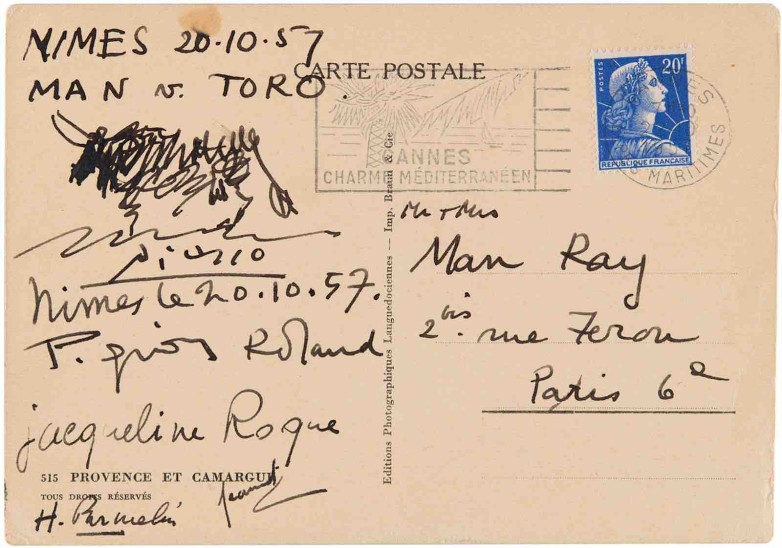 NIMES 20.10.57
MAN v. TORO.
Picasso
Nimes le 20.10.57.
Roland
jacqueline Roque
H. Parmelin
515 PROVENCE ET CAMARGUE
TOUS DROITS RÉSERVÉS
CARTE POSTALE
CANNES
CHARME MÉDITERRANÉEN
Editions Photographiques Languedociennes — Imp. Braun & Cie
POSTES
20F
REPUBLIQUE FRANCAISE
MARITIMES
Mr + Mrs
Man Ray
2 bis. rue Ferou
Paris 6e